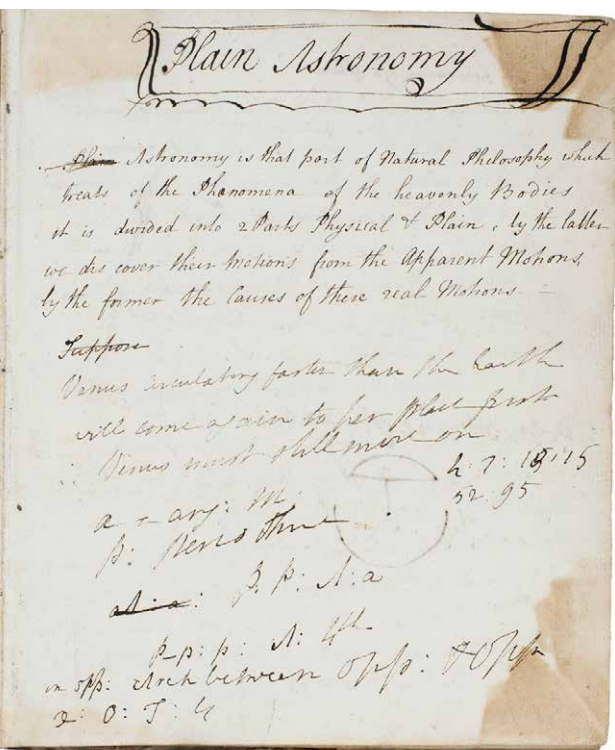 Plain Astronomy
Plain Astronomy is that part of Natural Philosophy which
treats of the Phænomena of the heavenly Bodies
it is divided into 2 Parts Physical & Plain, by the latter
we discover their motions from the Apparent Motions,
by the former the Causes of these real Motions
Suppose
Venus circulating faster than the Earth
will come again to her place first
Venus must still move on
a = ang: M.
p:
p: A: a
P-p: p: A: 4th
in opp: Arch between opp: & Opp